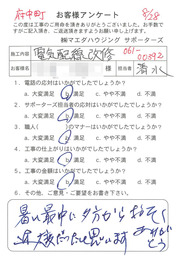 府中町
お客様アンケート
8/28
この度は工事のご用命を頂きありがとうございました。お手数
ですが上記ご記入頂き、ご返送頂きますようお願い申し上げます。
㈱マエダハウジング サポーターズ
061-00392
施工内容
電気配線改修
お客様名
様
担当者名
清水
1. 電話の応対はいかがでしたでしょうか?
a. 大変満足 b. 満足 c. やや不満 d. 不満
2. サポーターズ担当者の応対はいかがでしたでしょうか?
a. 大変満足 b. 満足 c. やや不満 d. 不満
3. 職人( )のマナーはいかがでしたでしょうか?
a. 大変満足 b. 満足 c. やや不満 d. 不満
4. 工事の仕上がりはいかがでしたでしょうか?
a. 大変満足 b. 満足 c. やや不満 d. 不満
5. 工事の価格はいかがでしたでしょうか?
a. 大変満足 b. 満足 c. やや不満 d. 不満
6. その他、ご意見・ご要望をお書き下さい。
暑い最中に夕方からおそく
大変だったと思います
ありがとう